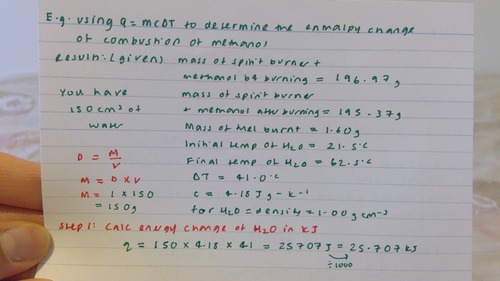 E.g. using q = mcDT to determine the enthalpy change
of combustion of methanol
result: (given) mass of spirit burner +
methanol b4 burning = 196.97g
You have mass of spirit burner
150cm³ of + methanol after burning = 195.37g
water Mass of fuel burnt = 1.60g
Initial temp of H₂O = 21.5°C
D = M/V Final temp of H₂O = 62.5°C
M = D x V DT = 41.0°C
M = 1 x 150 C = 4.18 J g - k⁻¹
= 150g for H₂O = density = 1.00g cm⁻³
Step 1: Calc energy change of H₂O in kJ
q = 150 x 4.18 x 41 = 25707J = 25.707kJ
÷1000